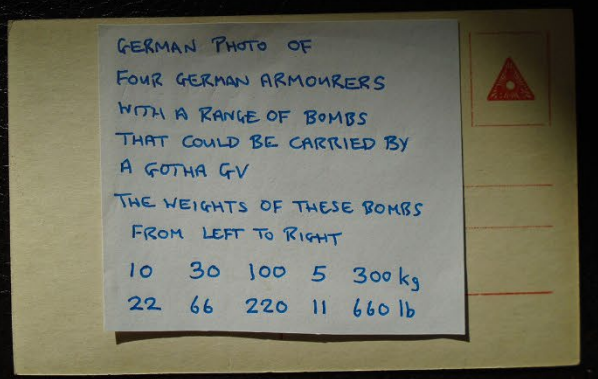 GERMAN PHOTO OF
FOUR GERMAN ARMOURERS
WITH A RANGE OF BOMBS
THAT COULD BE CARRIED BY
A GOTHA GV
THE WEIGHTS OF THESE BOMBS
FROM LEFT TO RIGHT
10 30 100 5 300 kg
22 66 220 11 660 lb